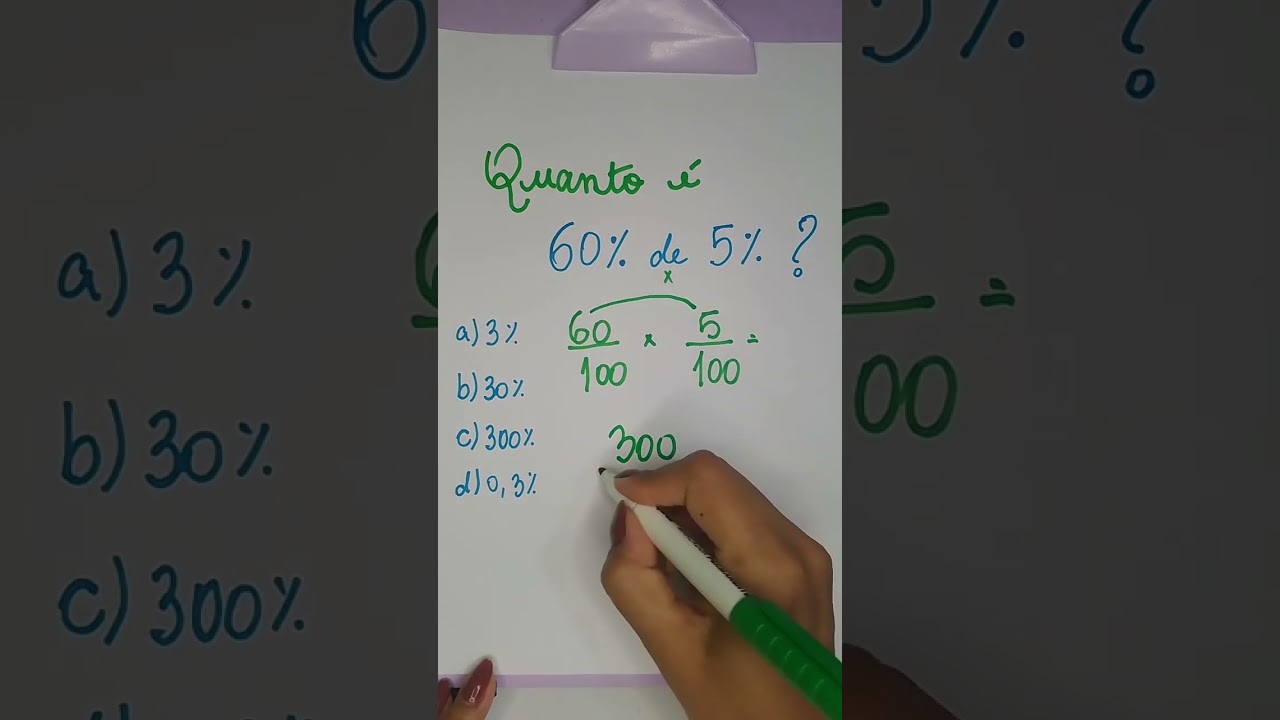 Quanto é
60% de 5% ?
x
a) 3%
60/100 x 5/100 =
b) 30%
c) 300%
300
d) 0,3%